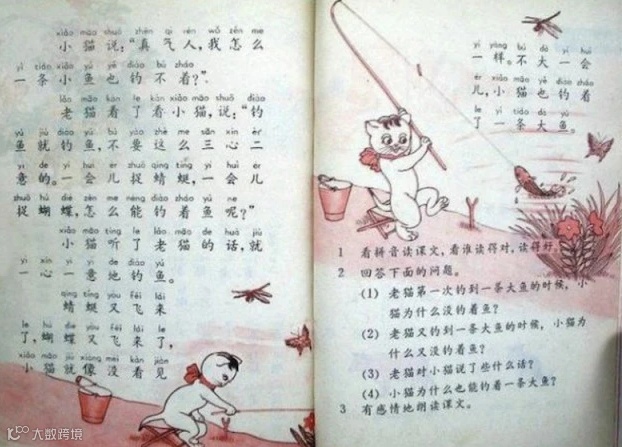 xiǎo māo shuō zhēn qì rén wǒ zěn me
小猫说：“真气人，我怎么
yì tiáo xiǎo yú yě diào bù zháo
一条小鱼也钓不着？”
lǎo māo kàn le kàn xiǎo māo shuō diào
老猫看了看小猫，说：“钓
yú jiù diào yú bú yào zhè me sān xīn èr
鱼就钓鱼，不要这么三心二
yì de yì huìr zhuō qīng tíng yì huìr
意的。一会儿捉蜻蜓，一会儿
zhuō hú dié zěn me néng diào zháo yú ne
捉蝴蝶，怎么能钓着鱼呢？”
xiǎo māo tīng le lǎo māo de huà jiù
小猫听了老猫的话，就
yì xīn yí yì de diào yú
一心一意地钓鱼。
qīng tíng yòu fēi lái
蜻蜓又飞来
le hú dié yòu fēi lái le
了，蝴蝶又飞来了，
xiǎo māo jiù xiàng méi kàn jiàn
小猫就像没看见
yí yàng bú dà yì huì
一样。不大一会
ér xiǎo māo yě diào zháo
儿，小猫也钓着
le yì tiáo dà yú
了一条大鱼。
1 看拼音读课文，看谁读得对，读得好。
2 回答下面的问题。
(1) 老猫第一次钓到一条大鱼的时候，小
猫为什么没钓着鱼？
(2) 老猫又钓到一条大鱼的时候，小猫为
什么又没钓着鱼？
(3) 老猫对小猫说了些什么话？
(4) 小猫为什么也能钓着一条大鱼？
3 有感情地朗读课文。
大数跨境